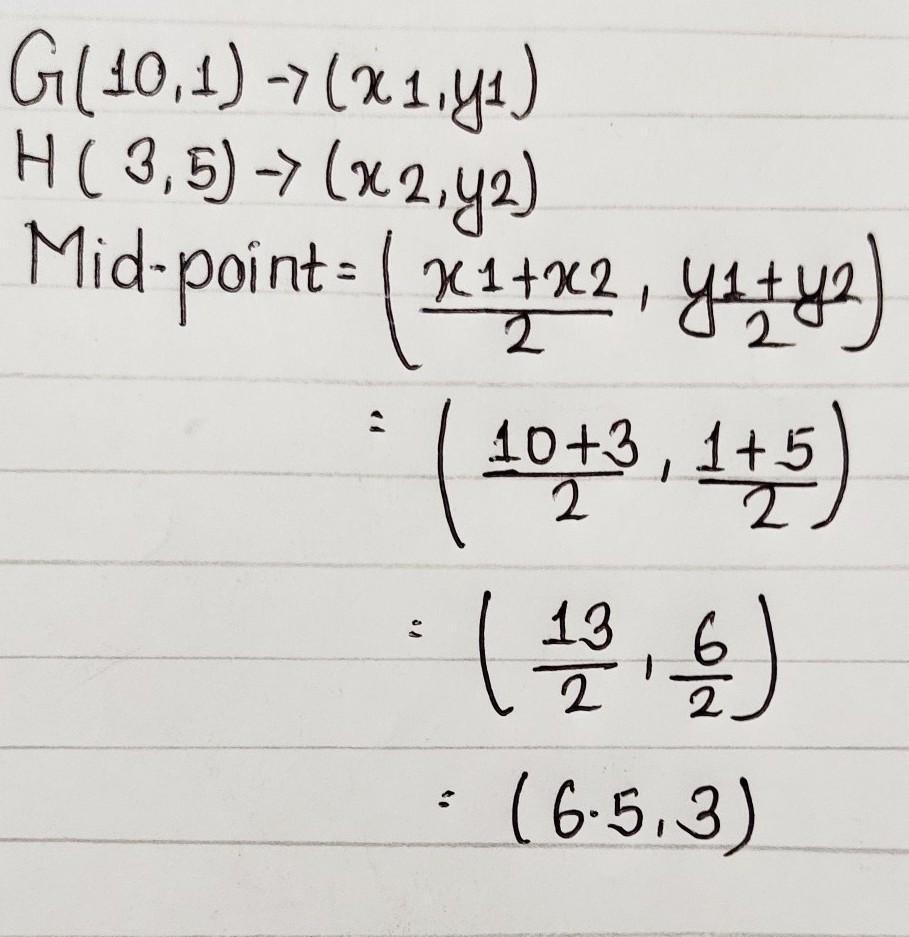 G(10,1) → (x1,y1)
H(3,5) → (x2,y2)
Mid-point = (x1+x2/2, y1+y2/2)
= (10+3/2, 1+5/2)
= (13/2, 6/2)
= (6.5,3)